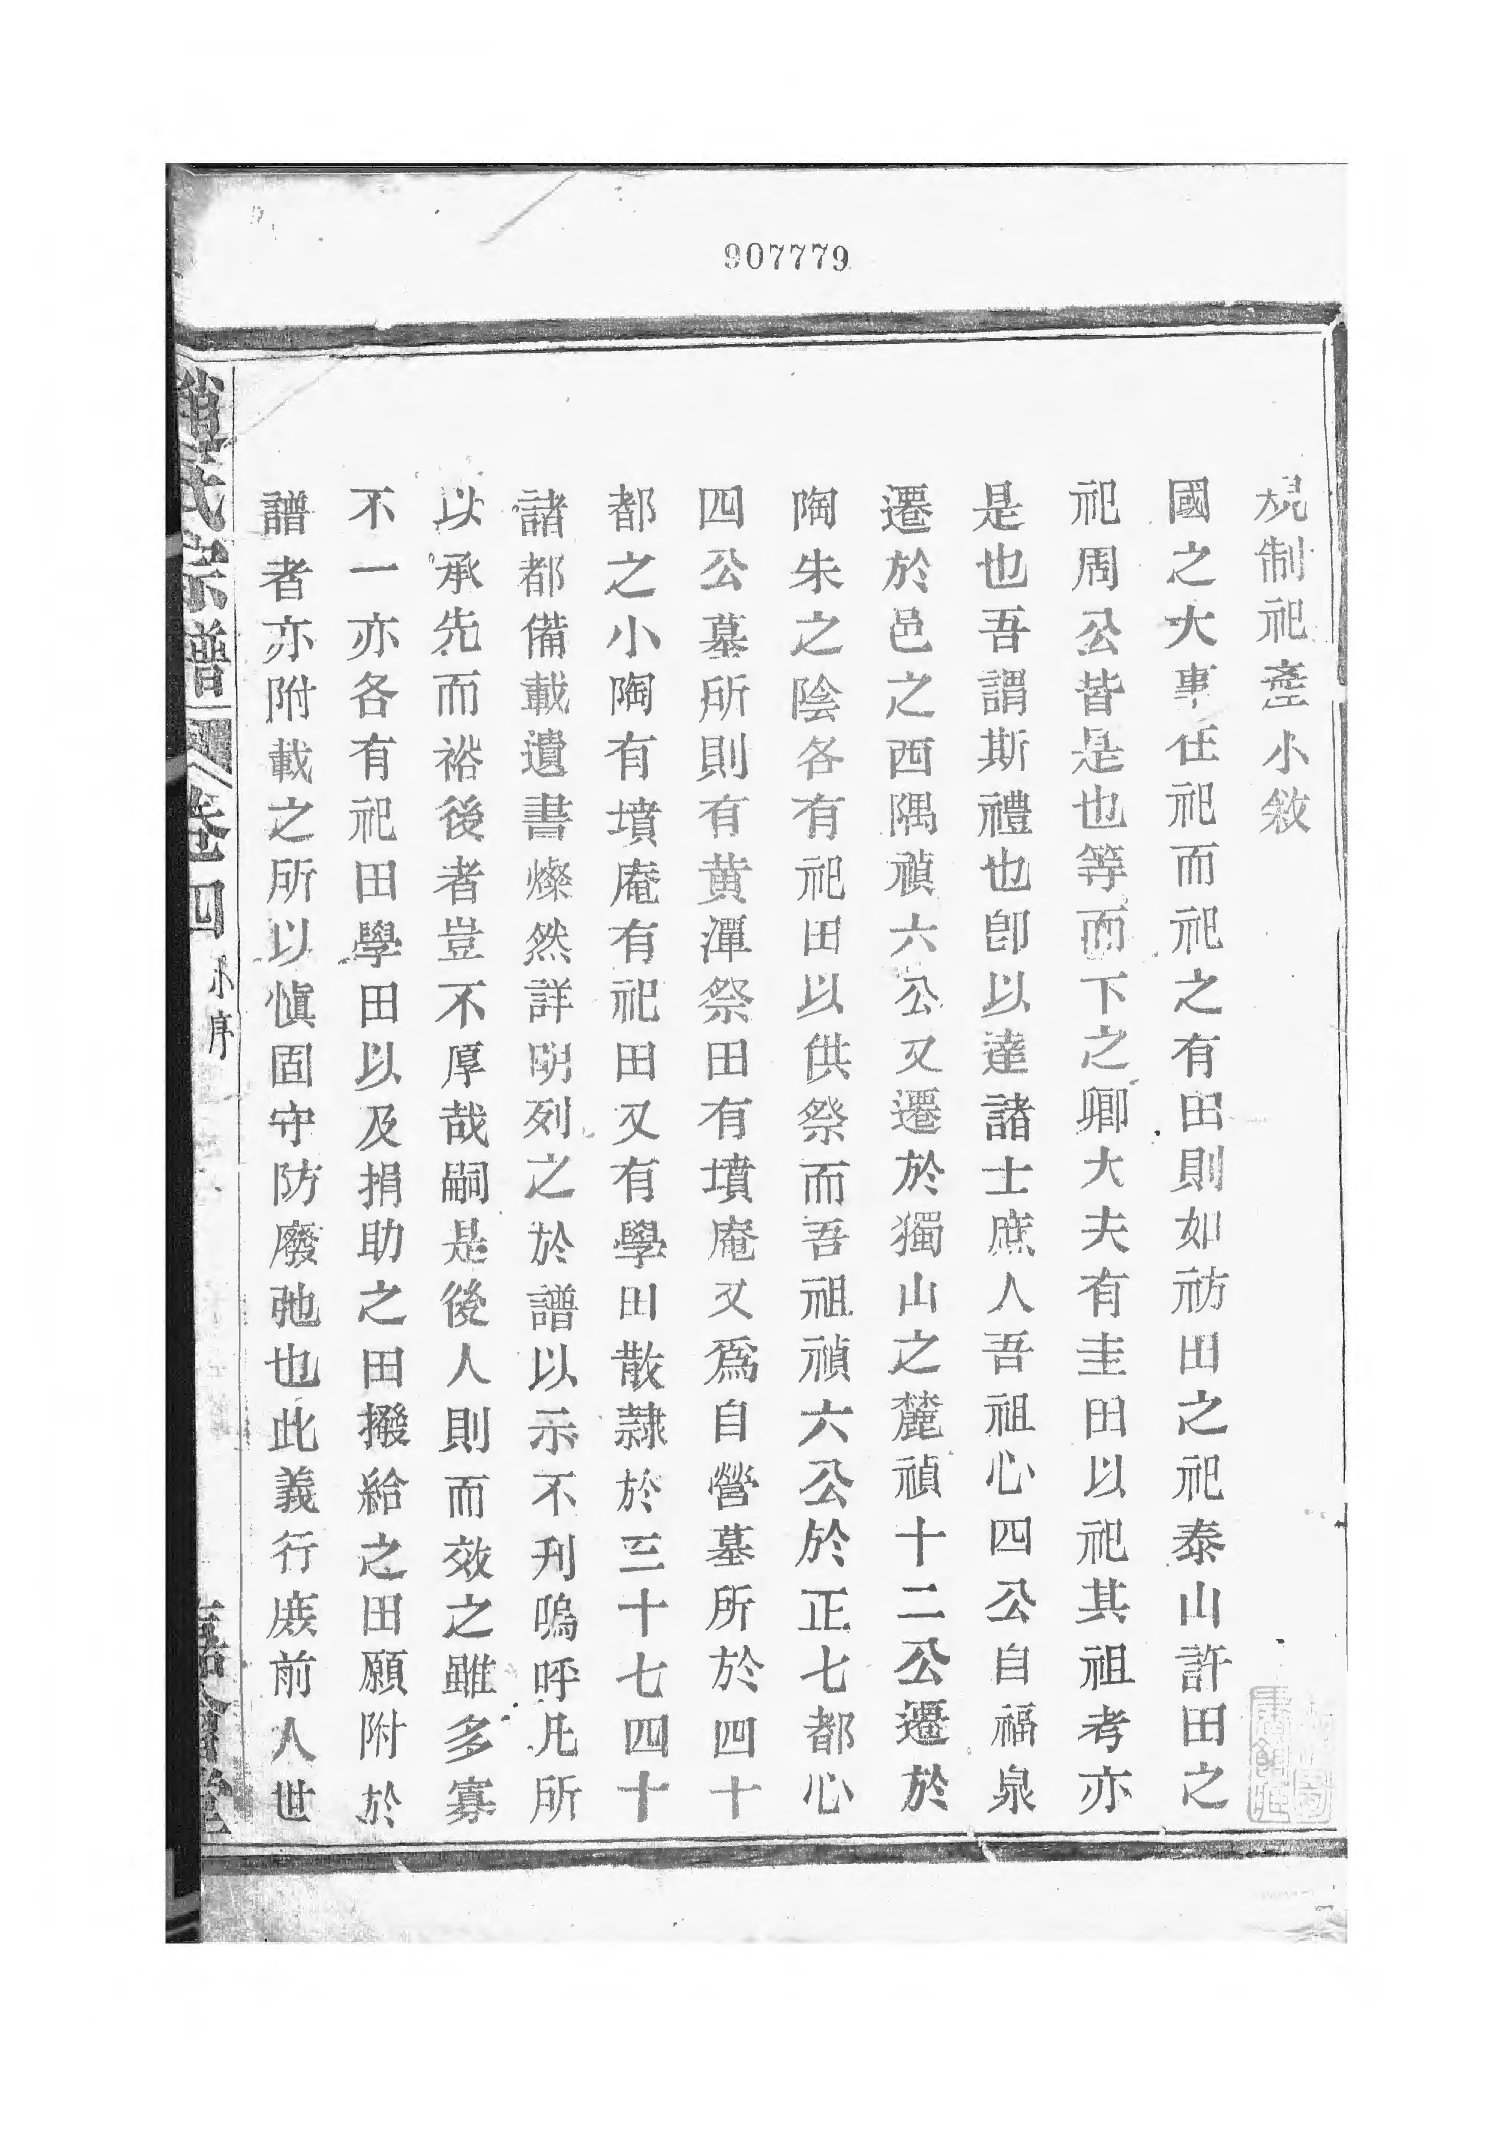 907779
規制祀產小敘
國之大事在祀而祀之有田則如祊田之祀泰山許田之
祀周公皆是也等而下之卿大夫有圭田以祀其祖考亦
是也吾謂斯禮也卽以達諸士庶人吾祖心四公自福泉
遷於邑之西隅禎六公又遷於獨山之麓禎十二公遷於
陶朱之陰各有祀田以供祭而吾祖禎六公於正七都心
四公墓所則有黄潭祭田有墳庵又爲自營墓所於四十
都之小陶有墳庵有祀田又有學田散隷於三十七四十
諸都備載遺書燦然詳明列之於譜以示不刋嗚呼凡所
以承先而裕後者豈不厚哉嗣是後人則而效之雖多寡
不一亦各有祀田學田以及捐助之田撥給之田願附於
譜者亦附載之所以愼固守防廢弛也此義行庶前人世
氏宗譜 卷四 小序